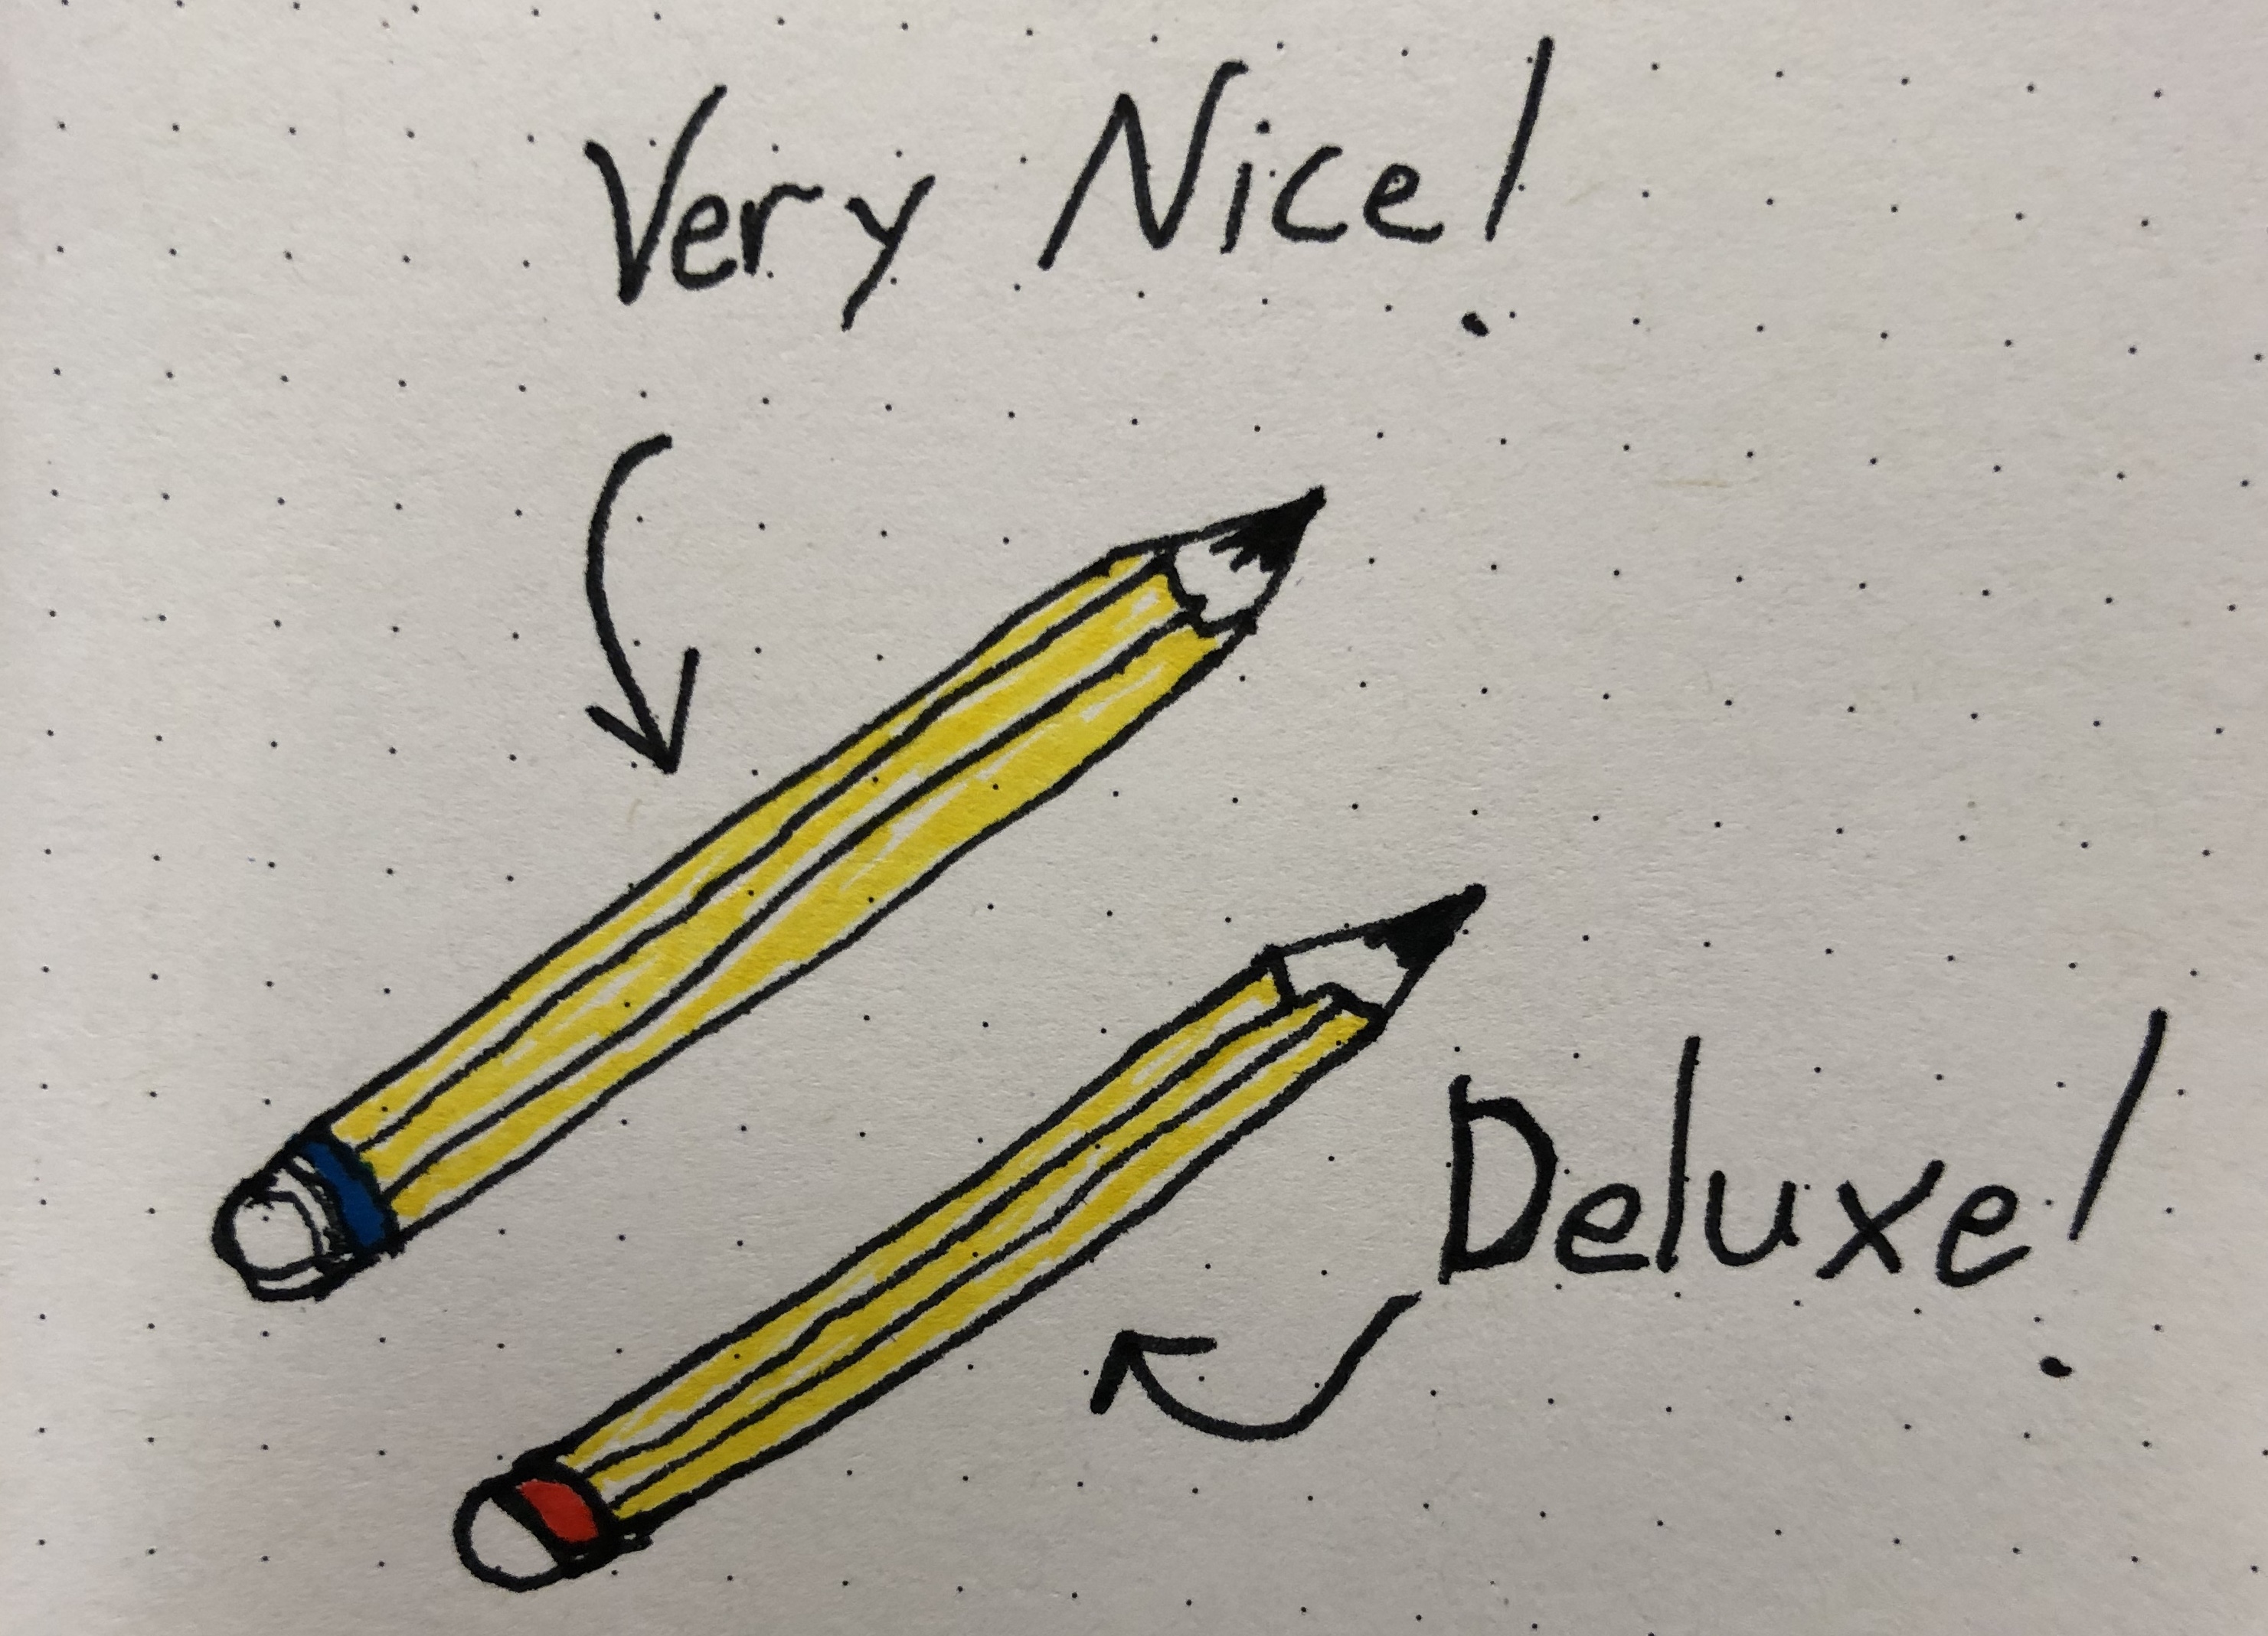 Very Nice!
Deluxe!